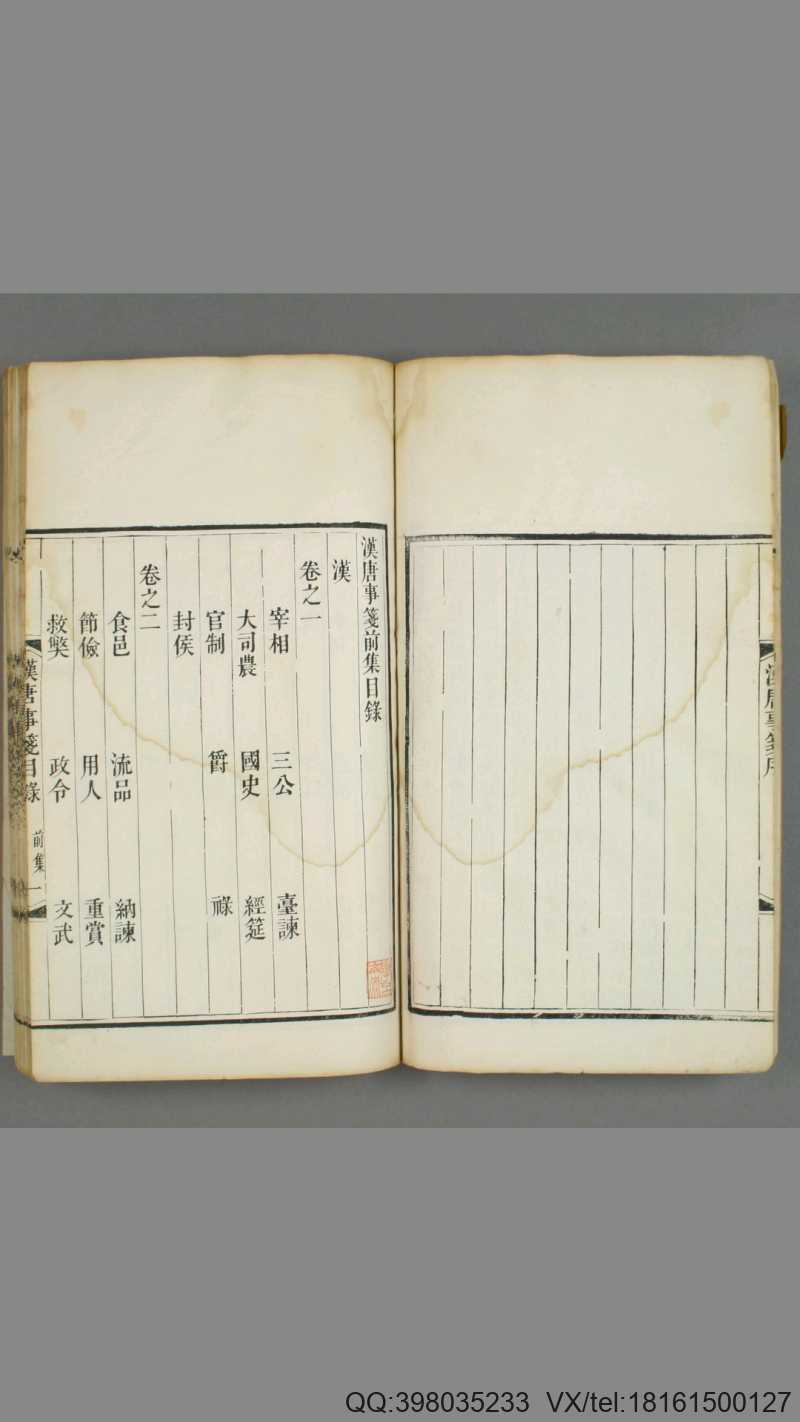 漢唐事箋序
漢唐事箋前集目錄
漢
卷之一
宰相 三公 臺諫
大司農 國史 經筵
官制 爵 祿
封侯
卷之二
食邑 流品 納諫
節儉 用人 重賞
救獘 政令 文武
漢唐事箋目錄 前集 一
QQ:398035233 VX/tel:18161500127